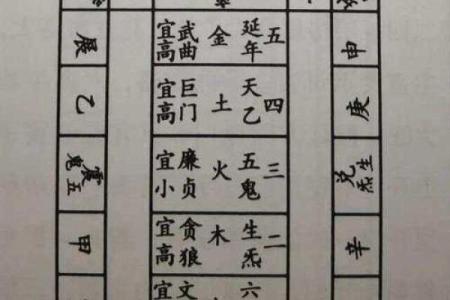 辰
五
延年
金
武曲
宜高
申
乙
四
天乙
土
巨门
宜高
庚
震
五鬼
三
五鬼
火
廉贞
宜小
兑
生炁
甲
二
生炁
木
贪狼
宜高
辛
六
文
宜